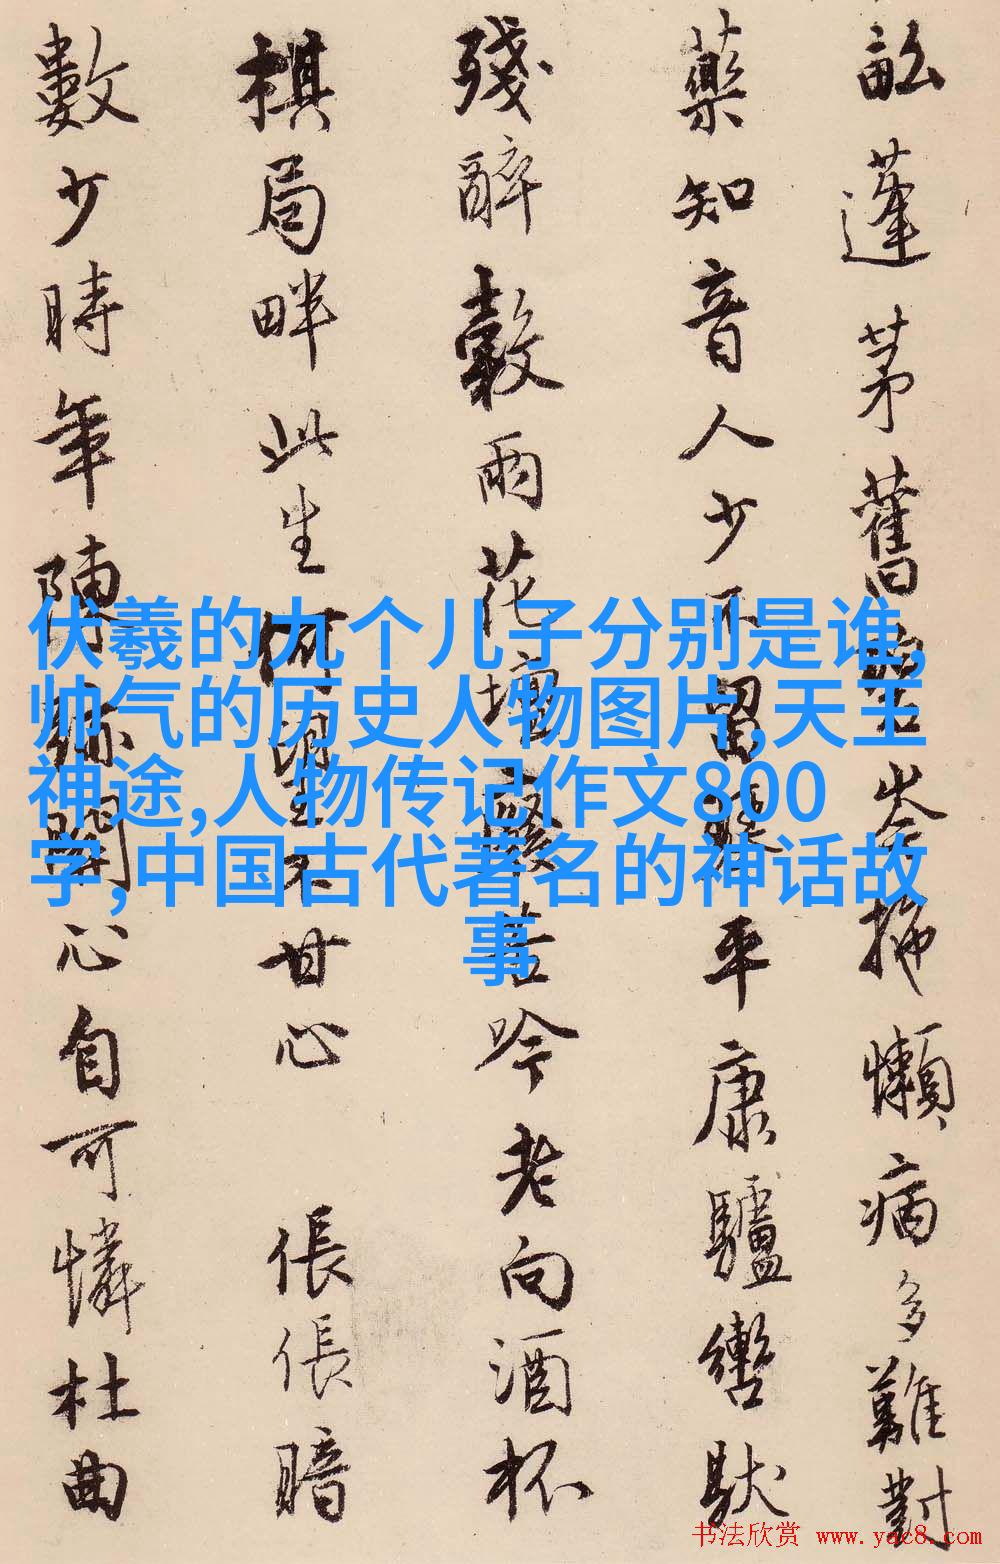 畝蓬茅舊拖懶病多難對
藥知音人少不留平康驢轡馱
殘醉穀雨花壇苦吟老向酒杯
棋局畔此生何不甘心 倀倀暗
數少時年陳關心自可憐杜曲
伏羲的九个儿子分别是谁,
帅气的历史人物图片,天王
神途,人物传记作文800
字,中国古代著名的神话故
事
书法欣赏 www.yac8.com